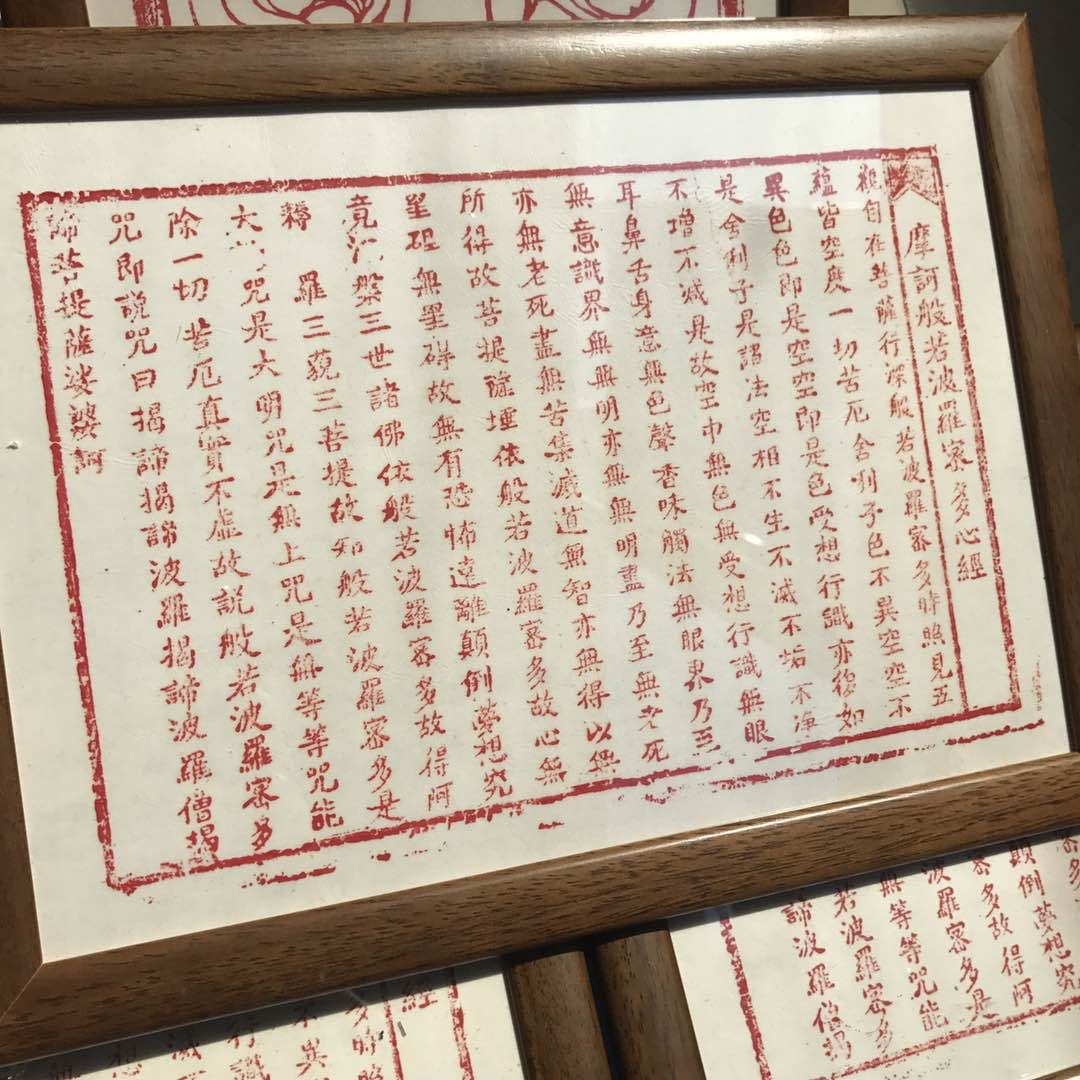 摩訶般若波羅蜜多心經
觀自在菩薩行深般若波羅蜜多時照見五
蘊皆空度一切苦厄舍利子色不異空空不
異色色即是空空即是色受想行識亦復如
是舍利子是諸法空相不生不滅不垢不淨
不增不減是故空中無色無受想行識無眼
耳鼻舌身意無色聲香味觸法無眼界乃至
無意識界無無明亦無無明盡乃至無老死
亦無老死盡無苦集滅道無智亦無得以無
所得故菩提薩埵依般若波羅蜜多故心無
罣礙無罣礙故無有恐怖遠離顛倒夢想究
竟涅槃三世諸佛依般若波羅蜜多故得阿
耨羅三藐三菩提故知般若波羅蜜多是
大咒是大明咒是無上咒是無等等咒能
除一切苦厄真實不虛故說般若波羅蜜多
咒即說咒曰揭諦揭諦波羅揭諦波羅僧揭
諦菩提薩娑婆訶
顛倒夢想究
蜜多故得阿
波羅蜜多是
無等等咒能
若波羅蜜多
諦波羅僧揭
經
多時照
不異
行識
滅
想